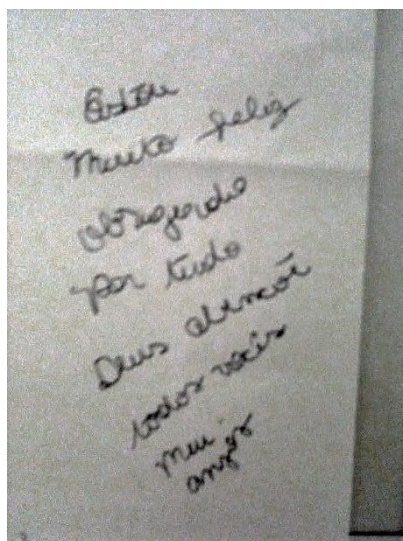 Estou
Muito feliz
obrigado
por tudo
Deus abençõi
todos vocês
meu
anjos